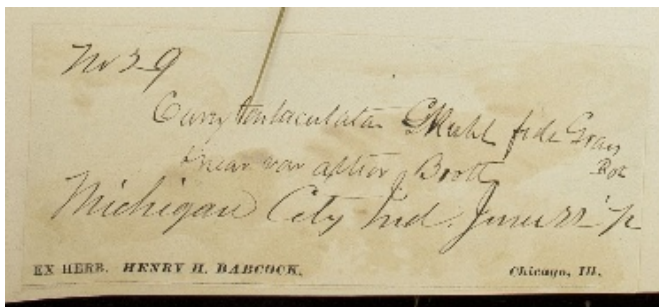 No 29
Carex tentaculata Muhl fide Gray
& near var altior Boott
Bot
Michigan City Ind. June 22
EX HERB. HENRY H. BABCOCK.
Chicago, Ill.